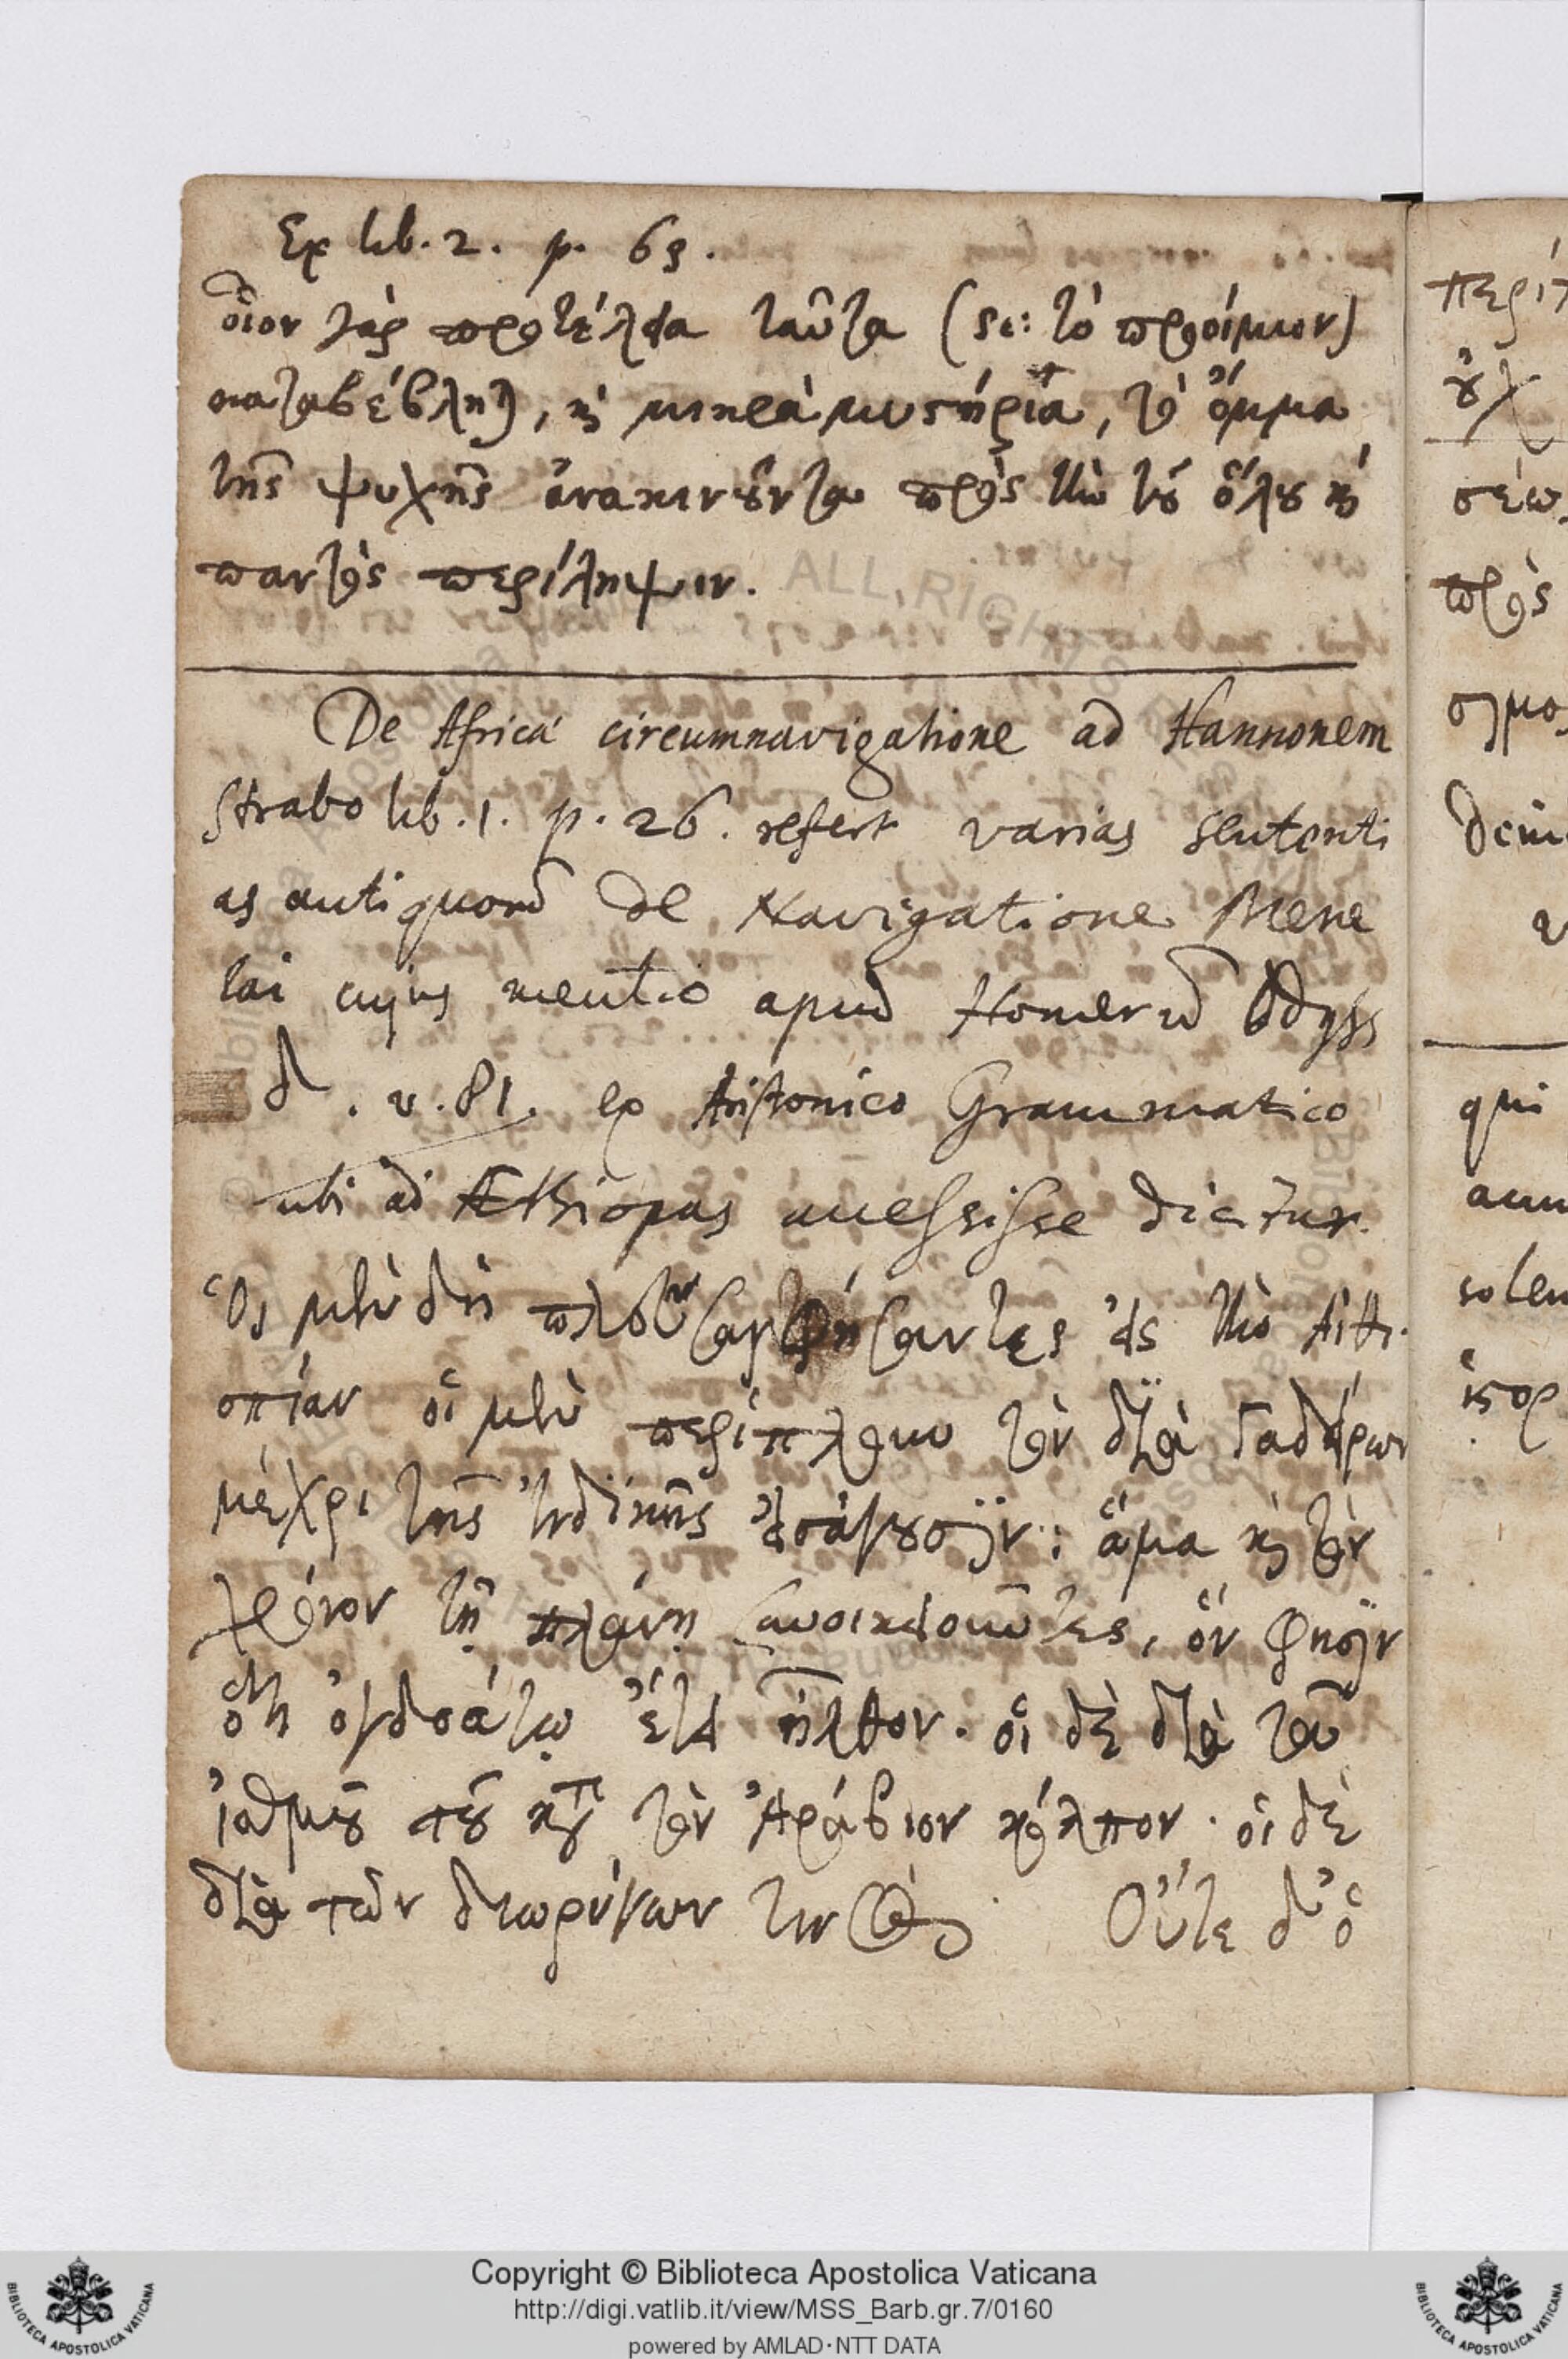 Ex lib. 2. p. 69.
οἷον γὰρ προτέλεια ταῦτα (sc: τὸ προοίμιον)
καταβέβληται, καὶ μικρὰ μυστήρια, τὸ ὄμμα
τῆς ψυχῆς ἀνακινοῦντα πρὸς τὴν τοῦ ὅλου καὶ
παντὸς περίληψιν.
De Africa circumnavigatione ad Hannonem
Strabo lib. 1. p. 26. refert varias sententi
as antiquorũ de Navigatione Mene
lai cujus mentio apud Homerũ Odyss
δ . v. 81. ex Aristonico Grammatico
ubi ad Æthiopas accessisse dicitur.
Οἱ μὲν δὴ πλοῦν στήσαντες εἰς τὴν Αἰθι
οπίαν οἱ μὲν περίπλουν τὸν διὰ Γαδείρων
μέχρι τῆς Ἰνδικῆς εἰσάγουσιν: ἅμα καὶ τὸν
χρόνον τῇ πλάνῃ συνοικειοῦντες, ὅν φησιν
ὅτι ὀγδοάτῳ ἔτει ἦλθον. οἱ δὲ διὰ τοῦ
ἰσθμοῦ τοῦ κατὰ τὸν Ἀράβιον κόλπον. οἱ δὲ
διὰ τῶν διωρύγων τινὸς. Οὔτε δ' ὁ
περίπ
οὐχ
πρὸς
qui
Copyright © Biblioteca Apostolica Vaticana
http://digi.vatlib.it/view/MSS_Barb.gr.7/0160
powered by AMLAD·NTT DATA
BIBLIOTECA APOSTOLICA VATICANA
BIBLIOTECA APOSTOLICA VATICANA